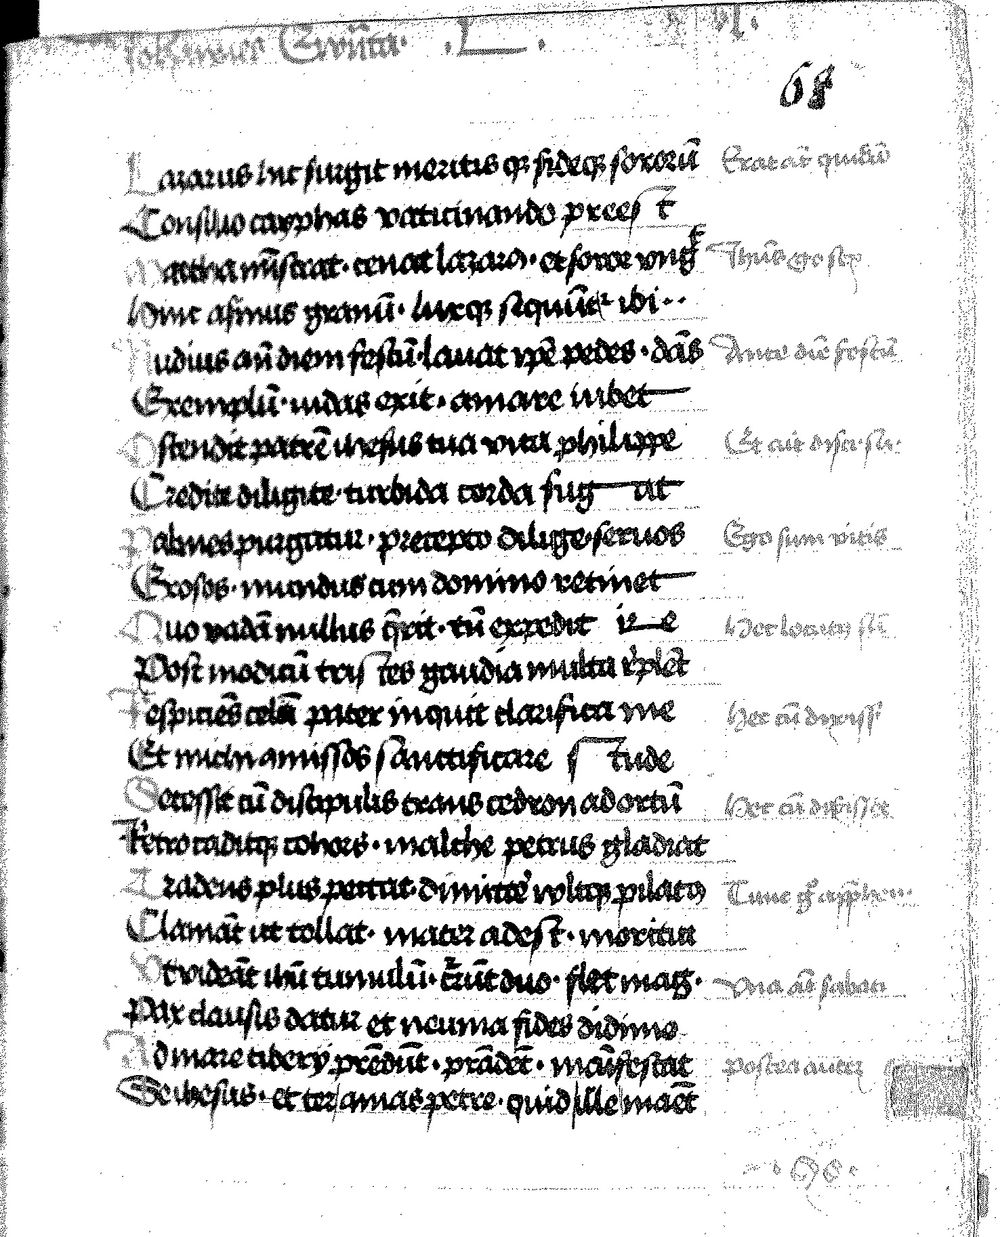 Johannes Ewa͞nta· .L.
68
Lazarus hic surgit meritis q; fideq; sororu͞
Erat au͞t quida͞
Consilio cayphas vaticinando prees t
Martha mi͞strat· cenat lazar9· et soror vng͞
Ihu͞s g͞ sex
Hinc asinus granu͞· luxq; sequu͞t ibi··
Nudius an͞ diem festu͞· lauat xp͞e pedes· da͞s
Ante die͞ festu͞
Exemplu͞· iudas exit· amare iubet
Ostendit patre͞ ihesus tua vita philippe
Et ait disci· su·
Credite diligite· turbida corda fug at
Palmes purgatur· precepto dilige· seruos
Ego sum vitis
Exosos· mundus cum domino retinet
Quo vada͞ nullus q͞rit· tu͞ expedit ire
Hec locut9 su͞
Post modicu͞ tris tes gaudia multa r͞plet
Respicie͞s celu͞ pater inquit clarifica me
Hec cu͞ dixiss
Et michi amissos sanctificare s tude
Secessit cu͞ discipulis trans cedron ad ortu͞
Hec cu͞ dixisset
Retro caditq; cohors· malche petrus gladiat
Tradens plus peccat· dimitte͞ vultq; pilat9
Tunc g͞ app͞hen·
Clama͞t ut tollat· mater adest· moritur
Vt videa͞t ihu͞ tumulu͞· c͞ru͞t duo· flet mag·
Vna au͞t sabati
Pax clausis datur et neuma fides didimo
Ad mare tibery pre͞du͞t· pra͞de͞t· ma͞ifestat
Postea autez
Se ihesus· et ter amas petre· quid ille mae͞t